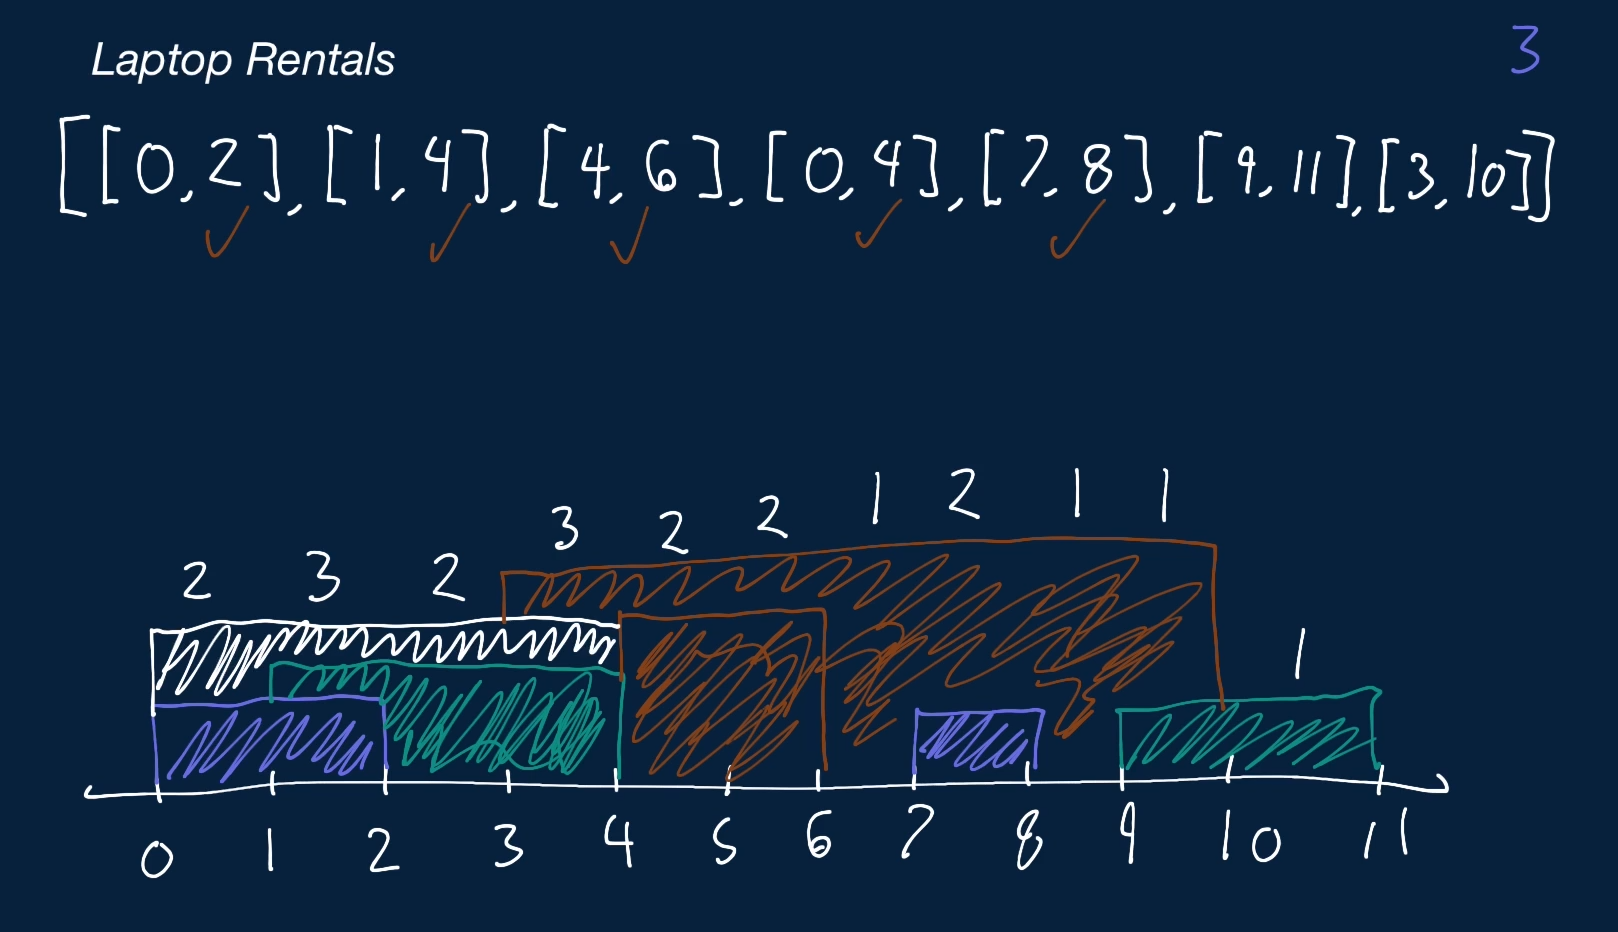 Laptop Rentals 3
[[0,2],[1,4],[4,6],[0,4],[7,8],[9,11],[3,10]]
1 2 1 1
3 2 2
2 3 2
1
0 1 2 3 4 5 6 7 8 9 10 11